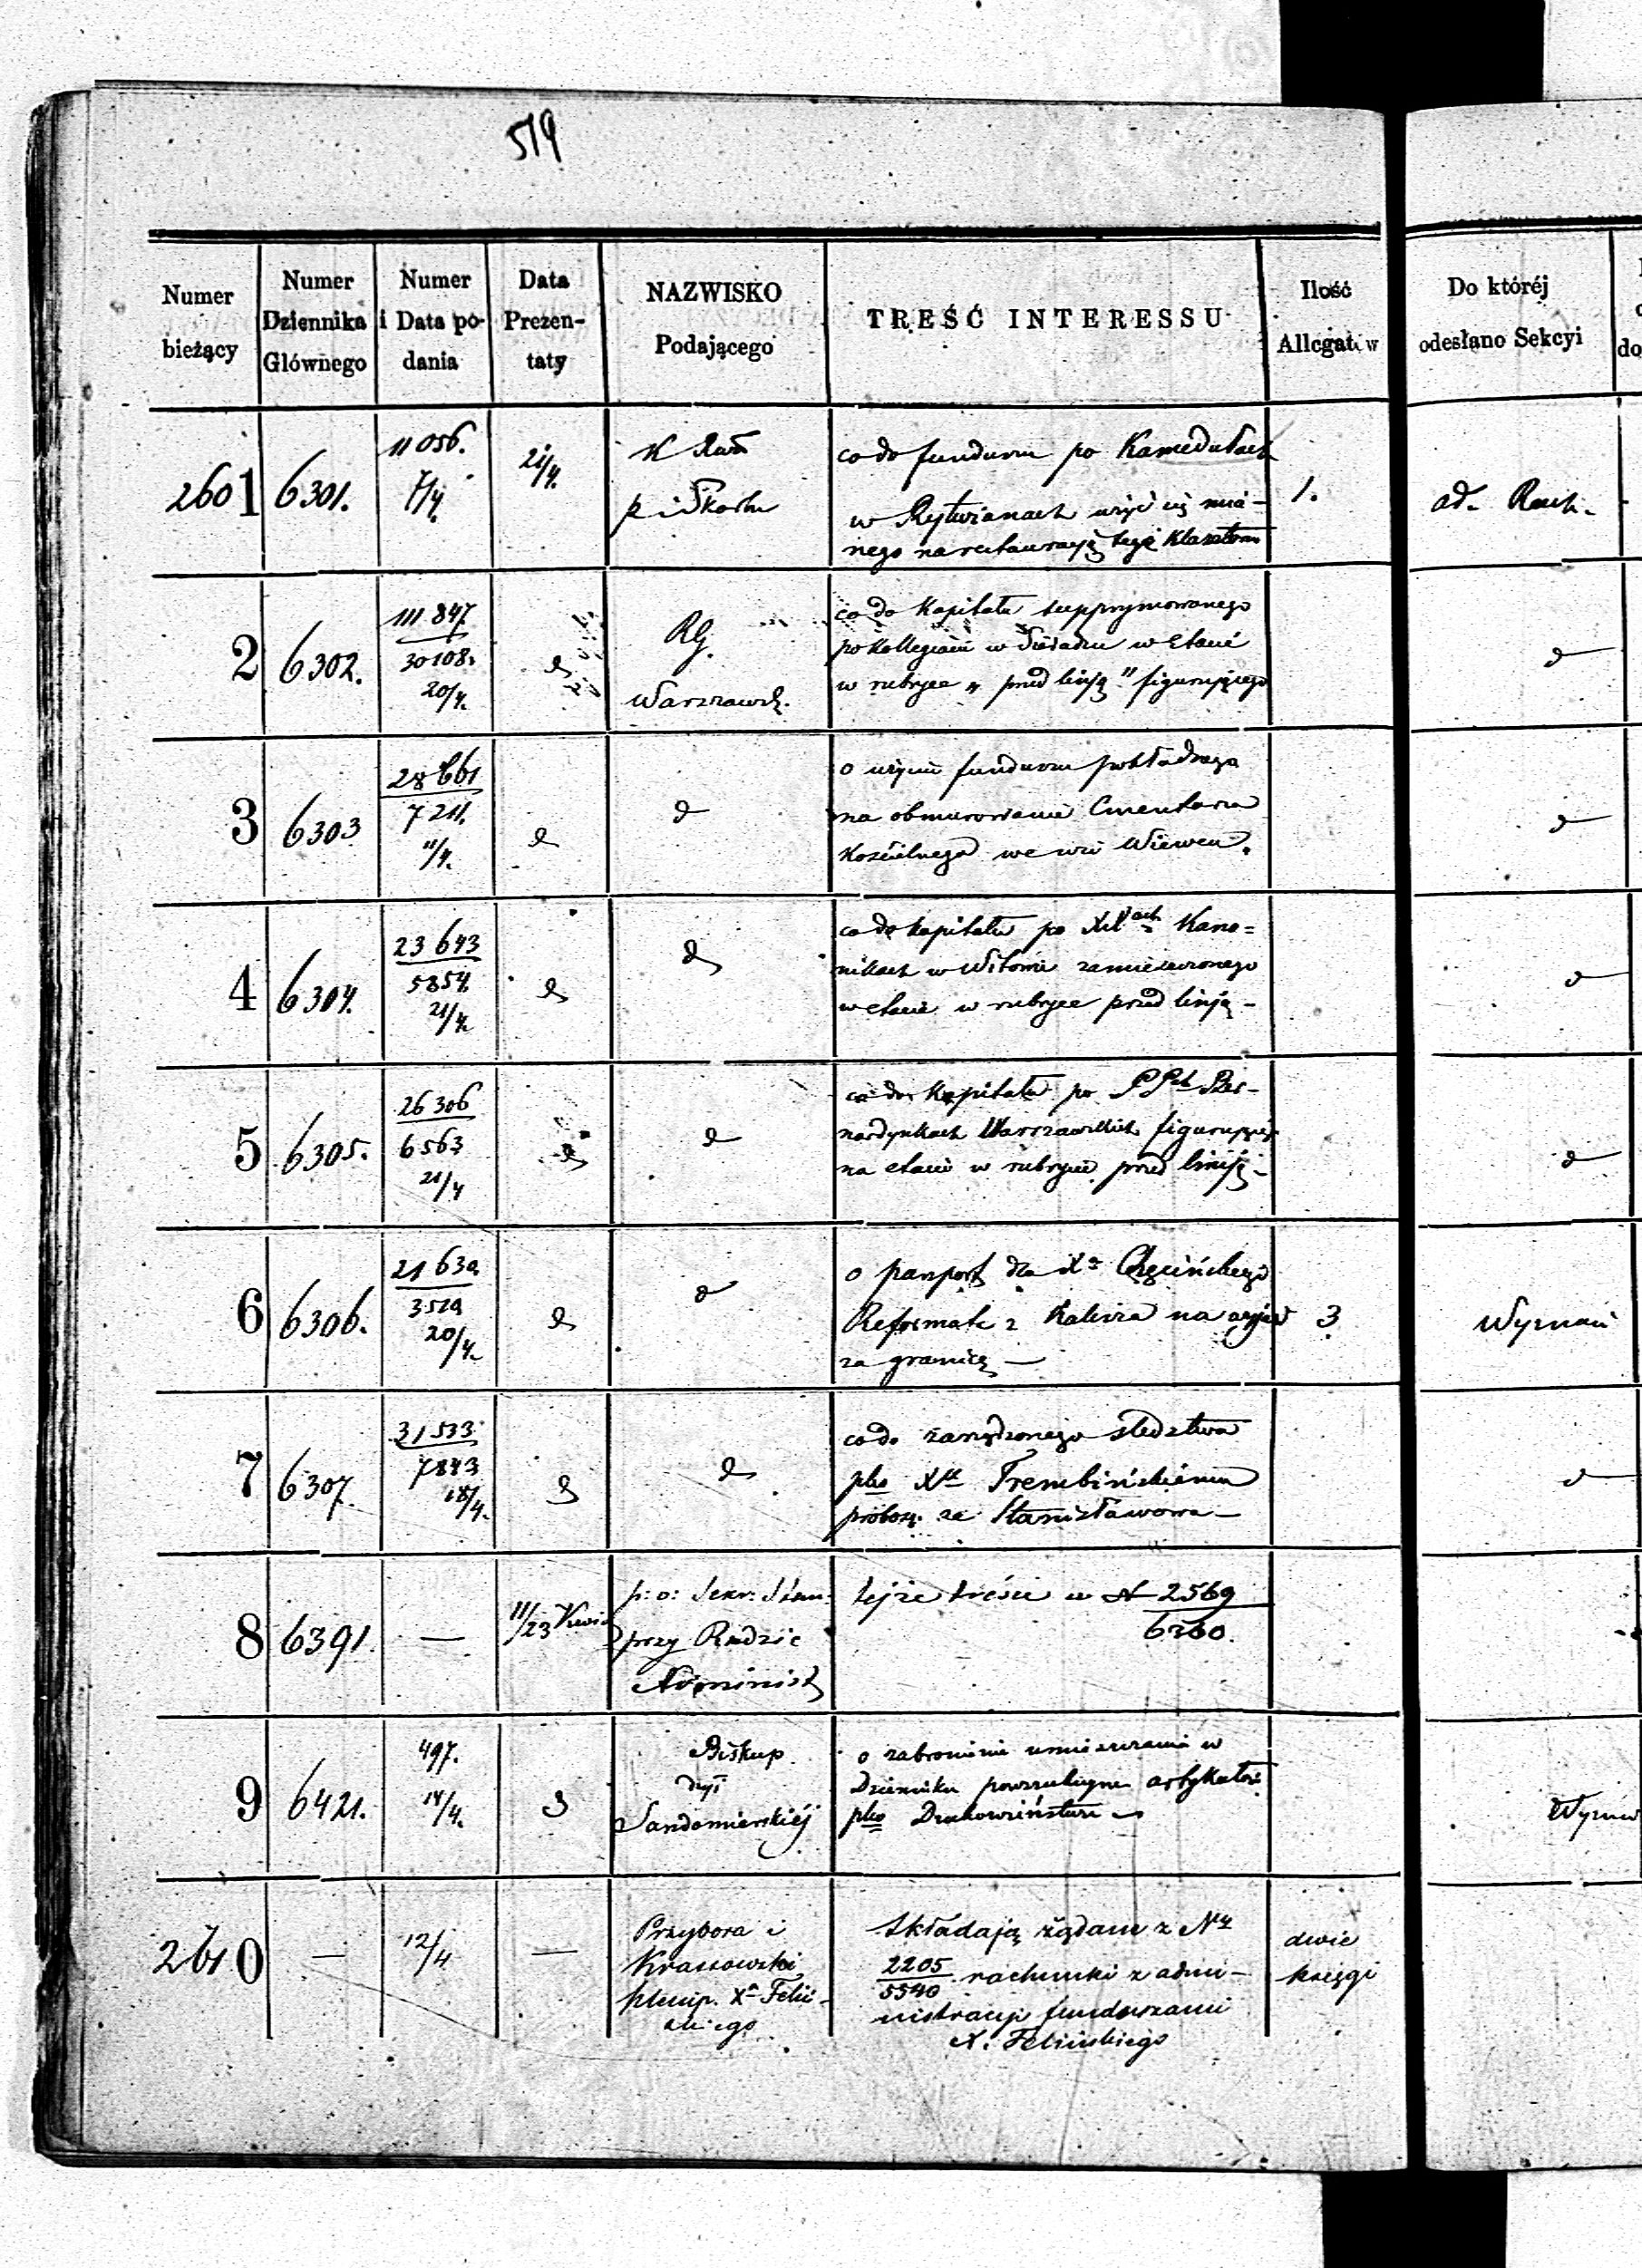 519
Numer bieżący
Numer Dziennika Głównego
Numer i Data podania
Data Prezentaty
NAZWISKO Podającego
TREŚĆ INTERESSU
Ilość Allegatów
Do któréj odesłano Sekcyi
2601 6301. 11056. 7/4. 21/4.
p i Skarbu
co do funduszu po Kamedułach
w Rytwianach użyć się mia-
nego na restauracyą tegoż Klasztoru
1.
2 6302. 111847 30108. 20/4.
RG.
Warszawsk.
co do Kapitału supprymowanego
po Kollegiacie w Sieradzu w etacie
w rubryce „ przed linją " figurującego
3 6303 28661 7211. 11/4.
o użycie funduszu pokładnego
na obmurowanie Cmentarza
Kościelnego we wsi Wiewcu.
4 6304. 23643 5854. 21/4.
co do kapitału po XX Kano=
nikach w Witowie zamieszczonego
w etacie w rubryce przed linją -
5 6305. 26306 6563 21/4
co do Kapitału po PP Ber-
nardynkach Warszawskich figurujący
na etacie w rubryce przed linją -
6 6306. 21630 3520 20/4.
o paszport dla Xa Chęcińskiego
Reformata z Kalisza na wyjazd
za granicę —
3
Wyznań
7 6307. 31533 7843 18/4.
co do zarządzonego śledztwa
pko Xu Trembińskiemu
probosz. ze Stanisławowa —
8 6391. — 11/23 Kwi.
p: o: Sekr: Stanu
przy Radzie
Administ.
tejże treści co N 2569
6360.
9 6421. 497. 14/4.
Biskup
dyi
Sandomierskiéj
o zabronienie umieszczania w
Dzienniku powszechnym artykułów
pko Duchowieństwu
2610 — 12/4 —
Przybora i
Krassowski
plenip. Xa Feliń-
skiego
Składają żądane z Nr
2205
5540 rachunki z admi-
nistracji funduszami
X. Felińskiego
dwie
księgi